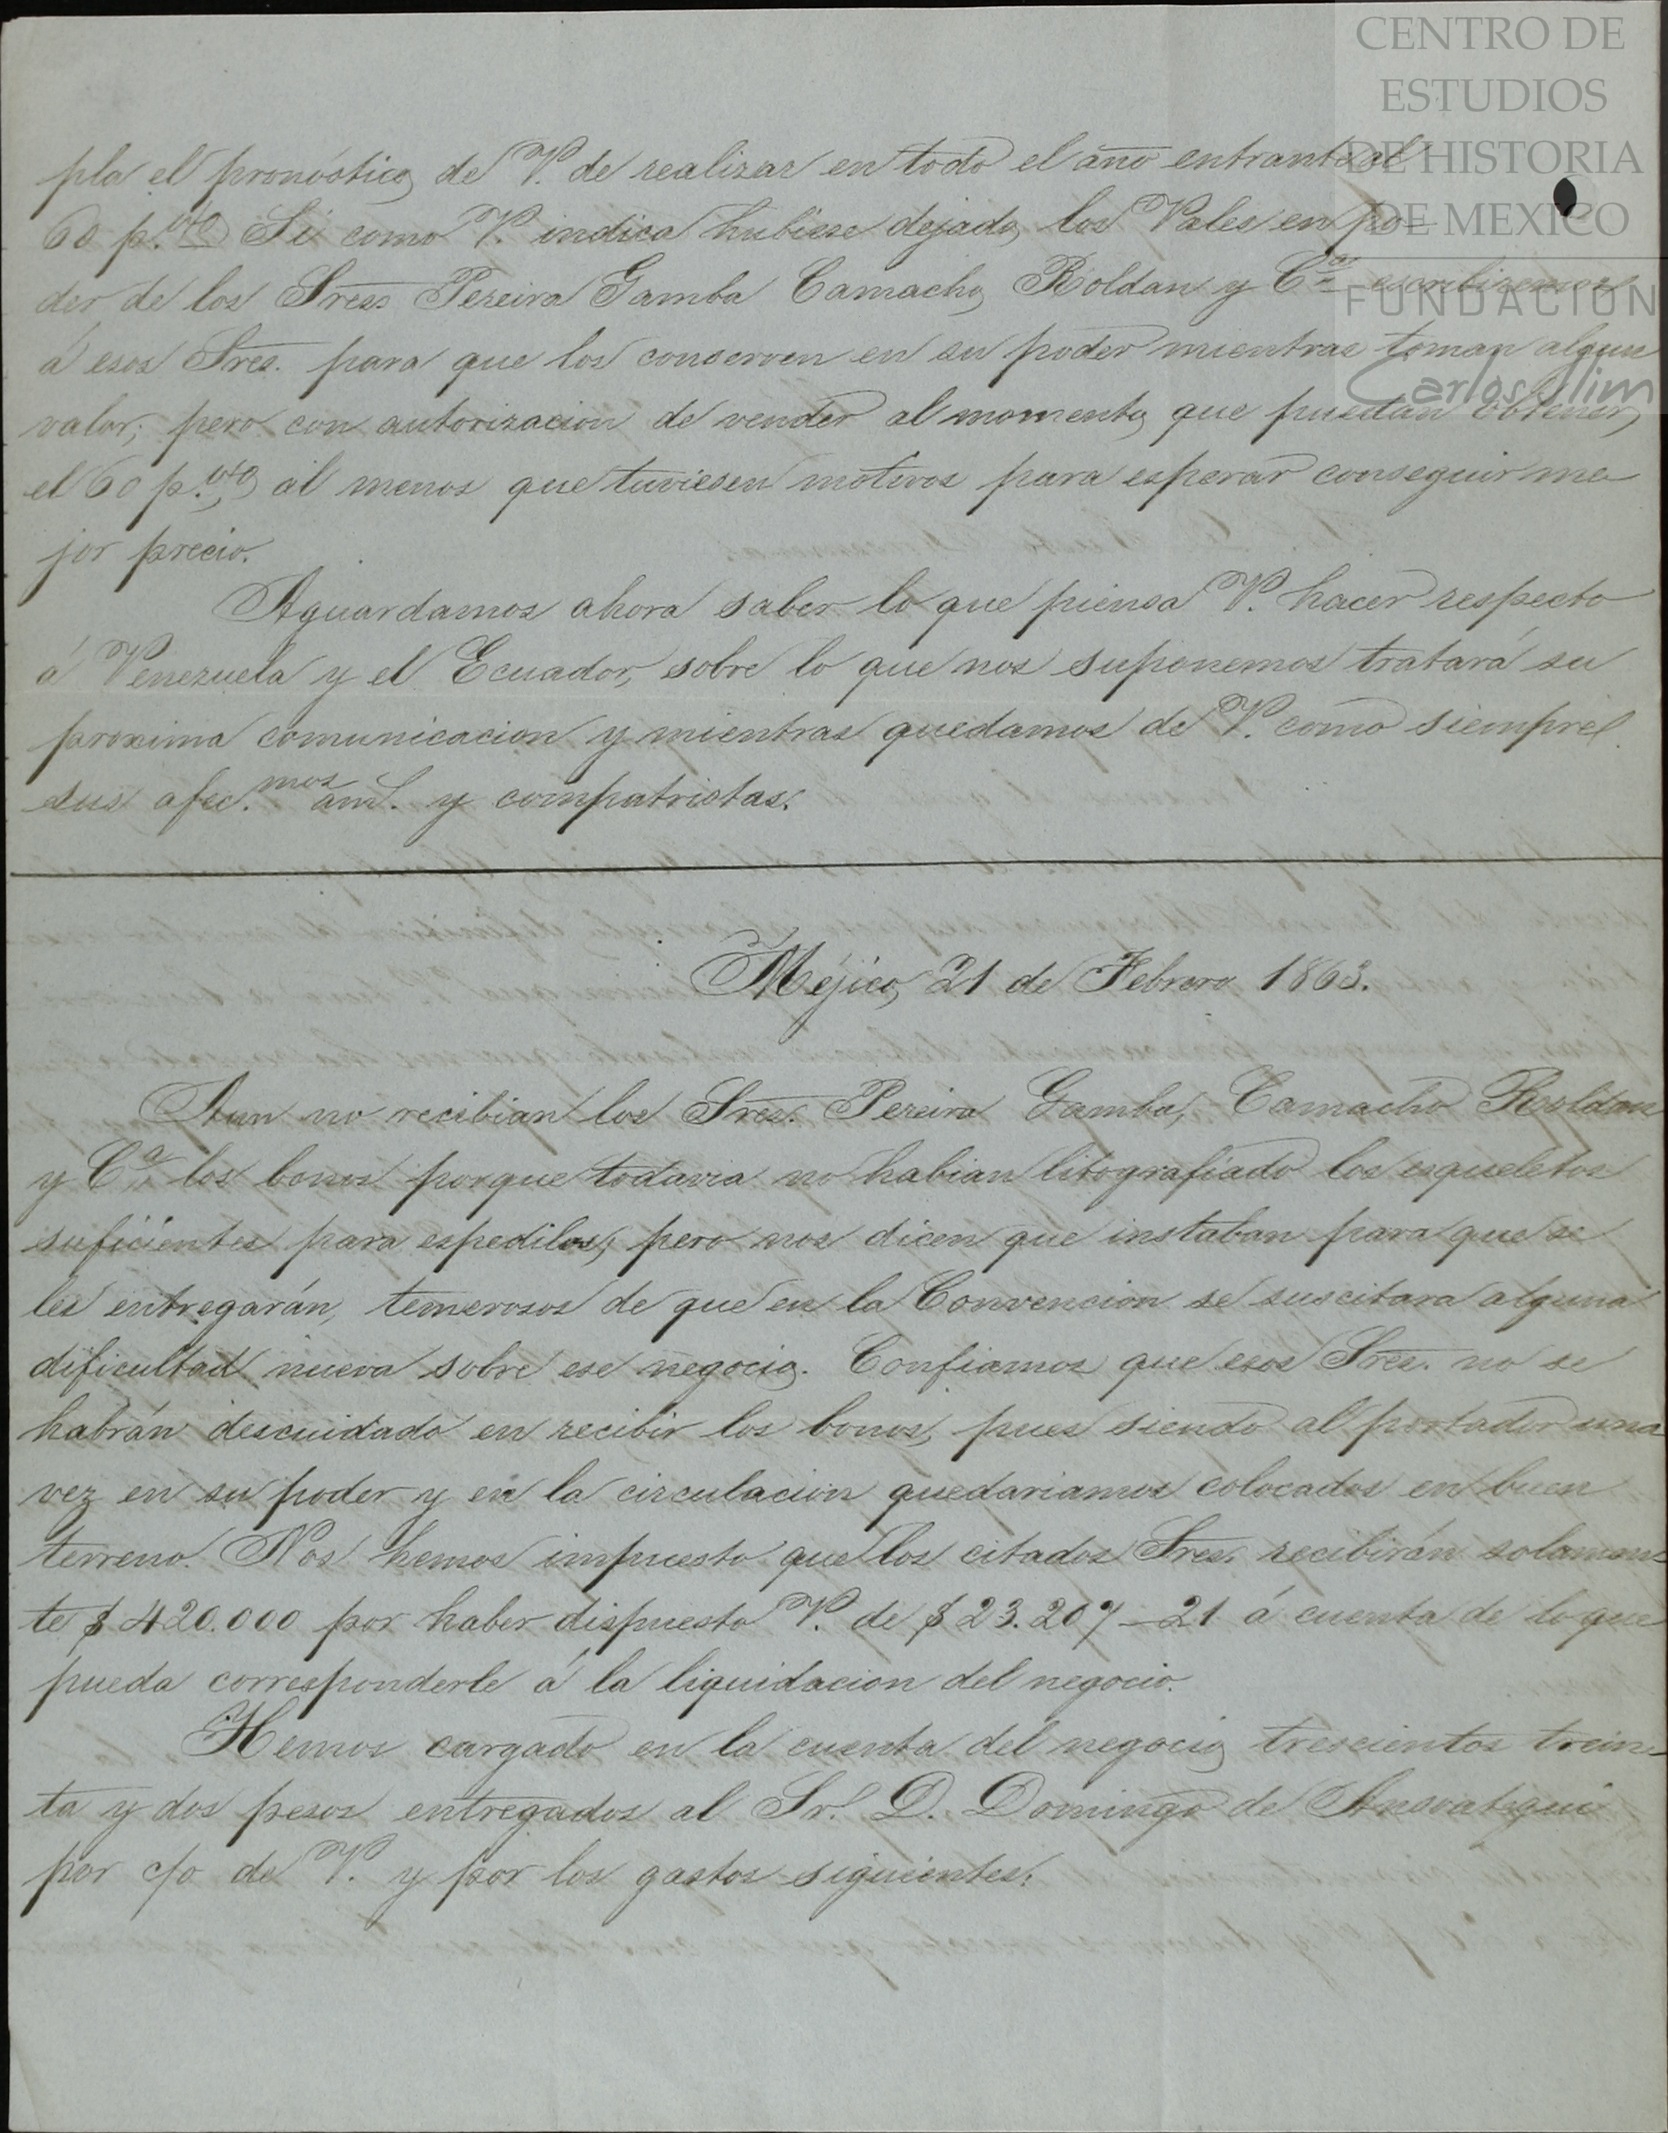 CENTRO DE
ESTUDIOS
DE HISTORIA
DE MEXICO
FUNDACION
Carlos Slim
pla el pronóstico de V. de realizar en todo el año entrante al
60 p.cto Si como V. indica hubiese dejado los Vales en po-
der de los Sres. Pereira Gamba Camacho Roldan y Ca. escribiremos
á esos Sres. para que los conserven en su poder mientras toman algun
valor; pero con autorizacion de vender al momento que puedan obtener,
el 60 p.cto, al menos que tuviesen motivos para esperar conseguir me
jor precio.
Aguardamos ahora saber lo que piensa V. hacer respecto
á Venezuela y el Ecuador, sobre lo que nos suponemos tratará su
proxima comunicacion y mientras quedamos de V. como siempre
sus afec.mos am.s y compatriotas.
Méjico, 21 de Febrero 1863.
Aun no recibian los Sres. Pereira Gamba, Camacho Roldan
y Ca. los bonos porque todavia no habian litografiado los esqueletos
suficientes para espedilos; pero nos dicen que instaban para que se
les entregarán, temerosos de que en la Convencion se suscitara alguna
dificultad nueva sobre ese negocio. Confiamos que esos Sres. no se
habrán descuidado en recibir los bonos, pues siendo al portador una
vez en su poder y en la circulacion quedariamos colocados en buen
terreno. Nos hemos impuesto que los citados Sres. recibirán solamen-
te $ 420.000 por haber dispuesto V. de $ 23.207—21 á cuenta de lo que
pueda corresponderle á la liquidacion del negocio.
Hemos cargado en la cuenta del negocio trescientos trein-
ta y dos pesos entregados al Sr. D. Domingo de Ansoategui
por c/o de V. y por los gastos siguientes.